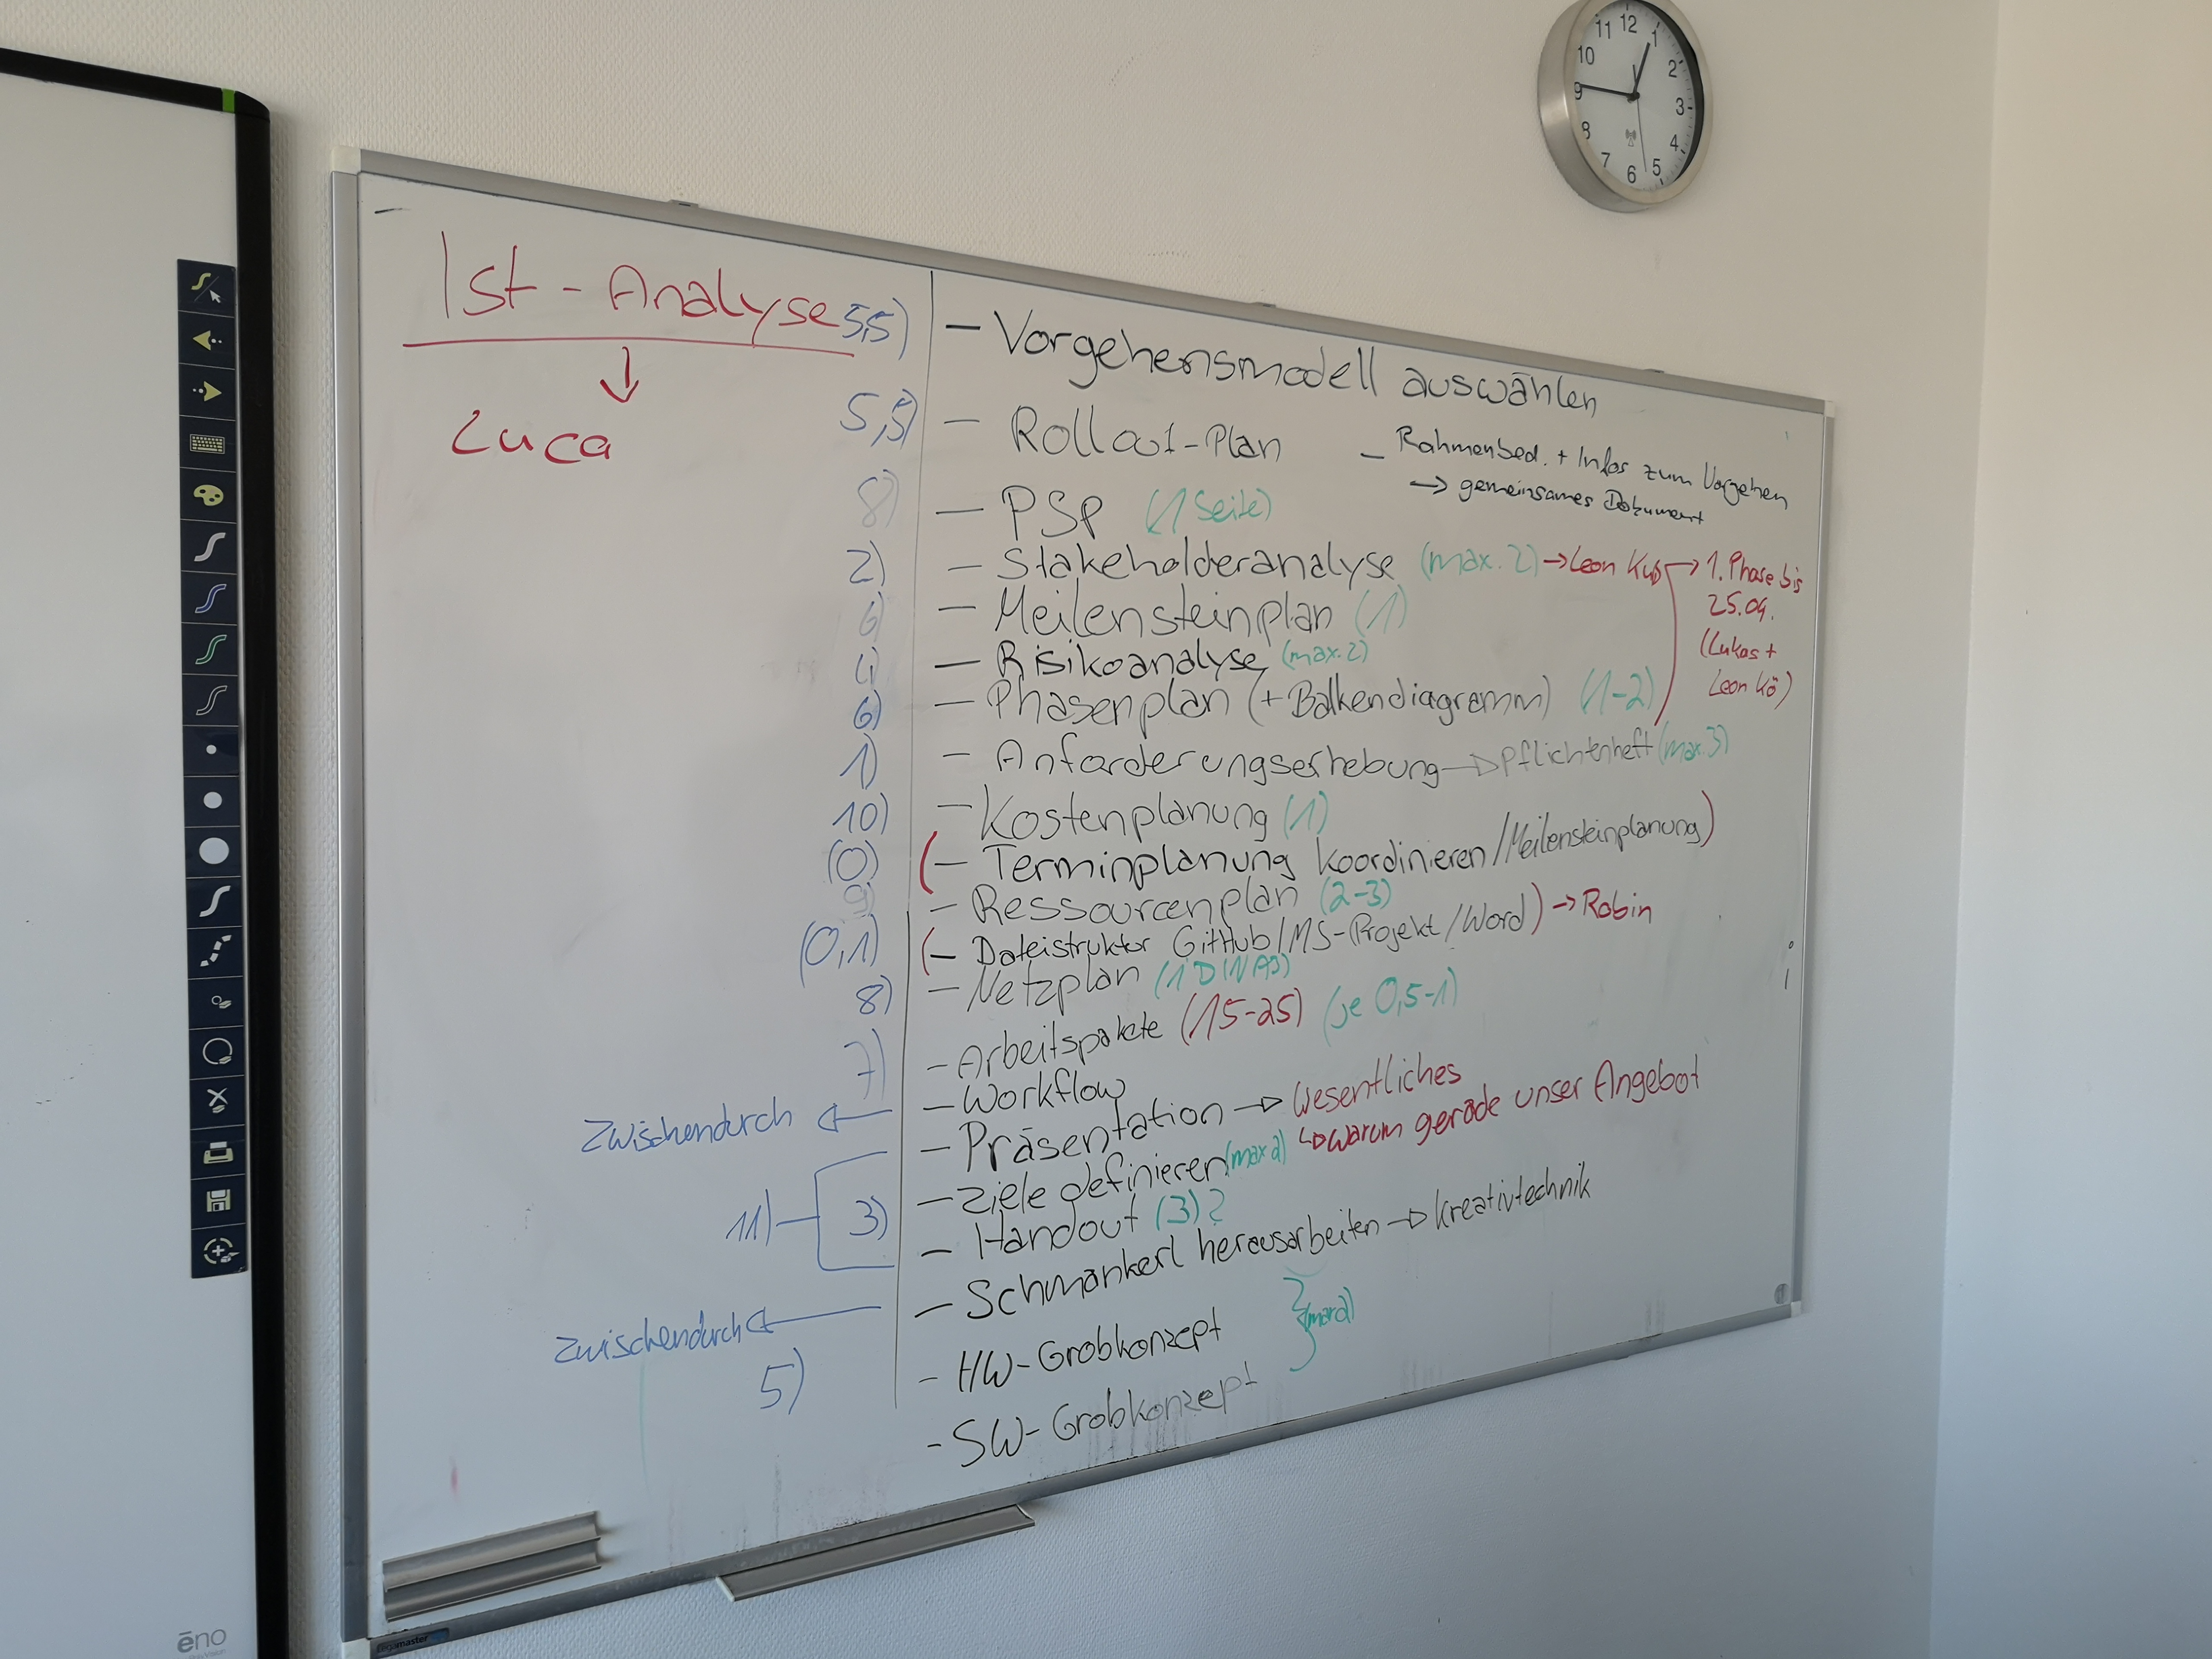 Ist-Analyse
↓
Luca
5,5) - Vorgehensmodell auswählen
5,5) - Rollout-Plan
- Rahmenbed. + Infos zum Vorgehen
→ gemeinsames Dokument
8) - PSP (1 Seite)
2) - Stakeholderanalyse (max. 2) → Leon Kub → 1. Phase bis
25.04.
(Lukas +
Leon Kö)
6) - Meilensteinplan (1)
4) - Risikoanalyse (max. 2)
6) - Phasenplan (+ Balkendiagramm) (1-2)
1) - Anforderungserhebung → Pflichtenheft (max. 3)
10) - Kostenplanung (1)
(0) (- Terminplanung koordinieren/Meilensteinplanung)
9) - Ressourcenplan (2-3)
(0,1) (- Dateistruktur GitHub/MS-Projekt/Word) → Robin
8) - Netzplan (1 DIN A3)
7) - Arbeitspakete (15-25) (je 0,5-1)
- Workflow
Zwischendurch ← - Präsentation → Wesentliches
↳ warum gerade unser Angebot
3) - Ziele definieren (max 2)
11) - Handout (3)?
Zwischendurch ← - Schmankerl herausarbeiten → Kreativtechnik
5) - HW-Grobkonzept
- SW-Grobkonzept
(max 2)
11 12 1 2 3 4 5 6 7 8 9 10
ēno